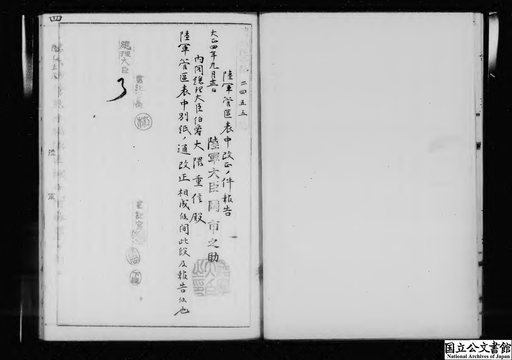 二四五五
陸軍管区表中改正ノ件報告
陸軍大臣岡市之助
大正四年九月
内閣総理大臣伯爵大隈重信殿
陸軍管区表中別紙ノ通改正相成候間此段及報告候也
総理大臣
国立公文書館
National Archives of Japan